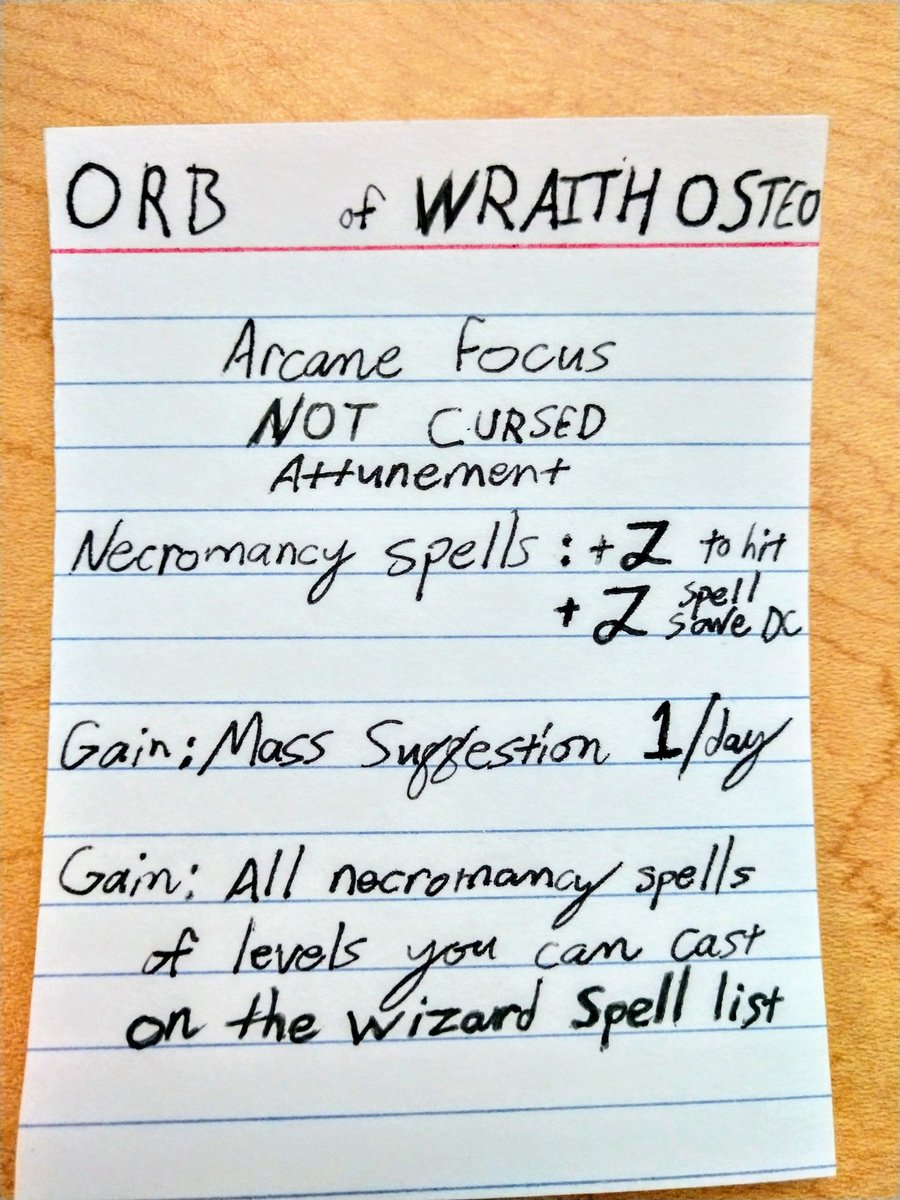 ORB of WRAITH OSTEO
Arcane Focus
NOT CURSED
Attunement
Necromancy spells : +2 to hit
+2 spell save DC
Gain: Mass Suggestion 1/day
Gain: All necromancy spells
of levels you can cast
on the wizard Spell list